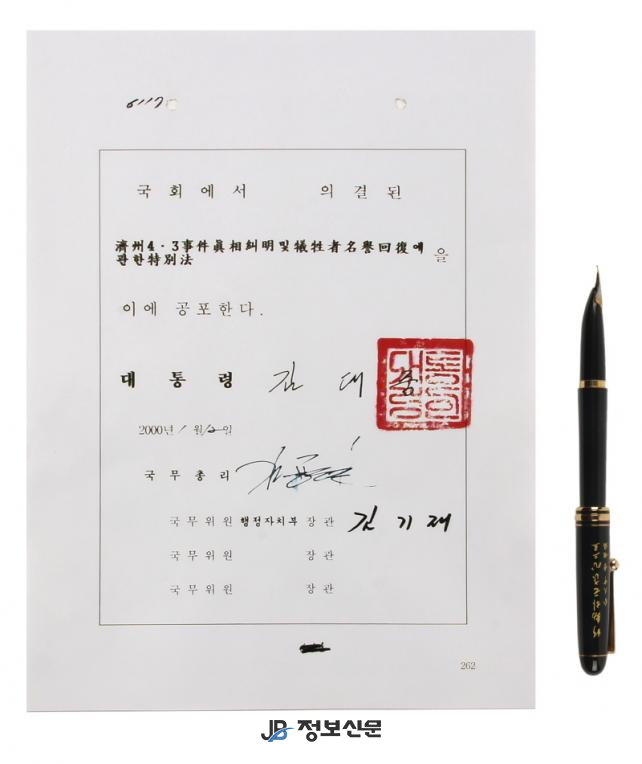 6117
국회에서 의결된
濟州4·3事件眞相糾明및犧牲者名譽回復에
관한特別法 을
이에 공포한다.
대통령 김 대 중
2000년 1월 12일
국무총리
국무위원 행정자치부 장관 김기재
국무위원 장관
국무위원 장관
262
JB 정보신문